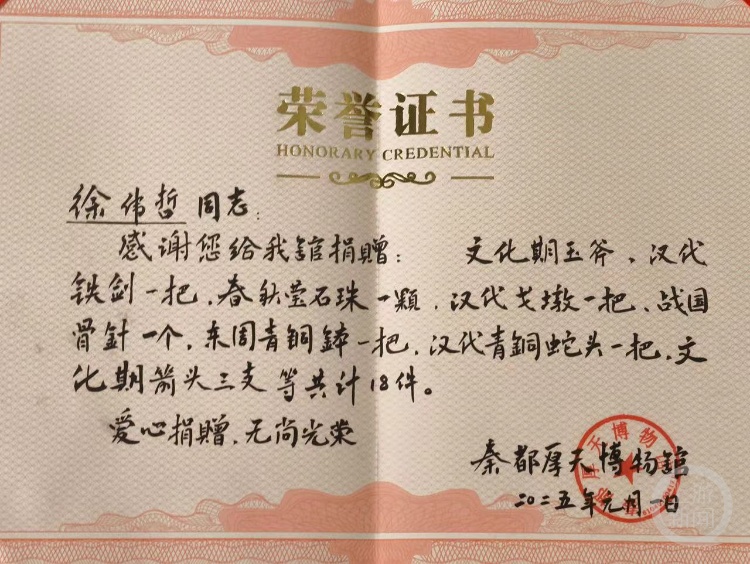 荣誉证书
HONORARY CREDENTIAL
徐伟哲同志：
感谢您给我舘捐贈： 文化期玉斧、汉代
铁剑一把、春秋莹石珠一顆，汉代戈墩一把、战国
骨針一个，东周青銅
一把，汉代青銅蛇头一把，文
化期箭头三支等共计18件。
爱心捐贈，无尚光荣
秦都厚天博物舘
二〇二五年元月一日